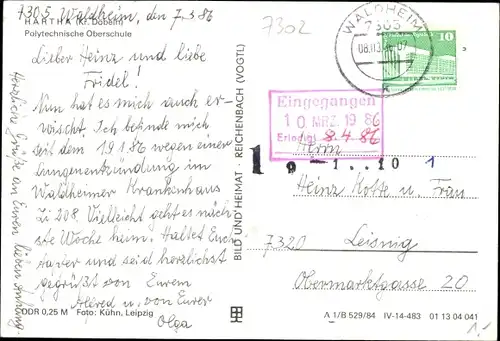 7305 Waldheim, den 7.3.86
HARTHA (Kr. Döbeln)
Polytechnische Oberschule
Lieber Heinz und liebe
Friedel!
Nun hat es mich auch er-
wischt. Ich befinde mich
seit dem 19.1.86 wegen einer
Lungenentzündung im
Waldheimer Krankenhaus
Zi 208. Vielleicht geht es näch-
ste Woche heim. Haltet Euch
tapfer und seid herzlichst
gegrüßt von Eurem
Alfred u. von Eurer
Olga
Herzliche Grüße an Euren lieben Anhang.
DDR 0,25 M Foto: Kühn, Leipzig
BILD UND HEIMAT · REICHENBACH (VOGTL)
7302
WALDHEIM
7305
08.03.
07
10
Eingegangen
10 MRZ. 1986
Erledigt 8.4.86
1 9 - 1 . . 10 1
Herrn
Heinz Kotte u. Frau
7320 Leisnig
Obermarktgasse 20
A 1/B 529/84 IV-14-483 01 13 04 041